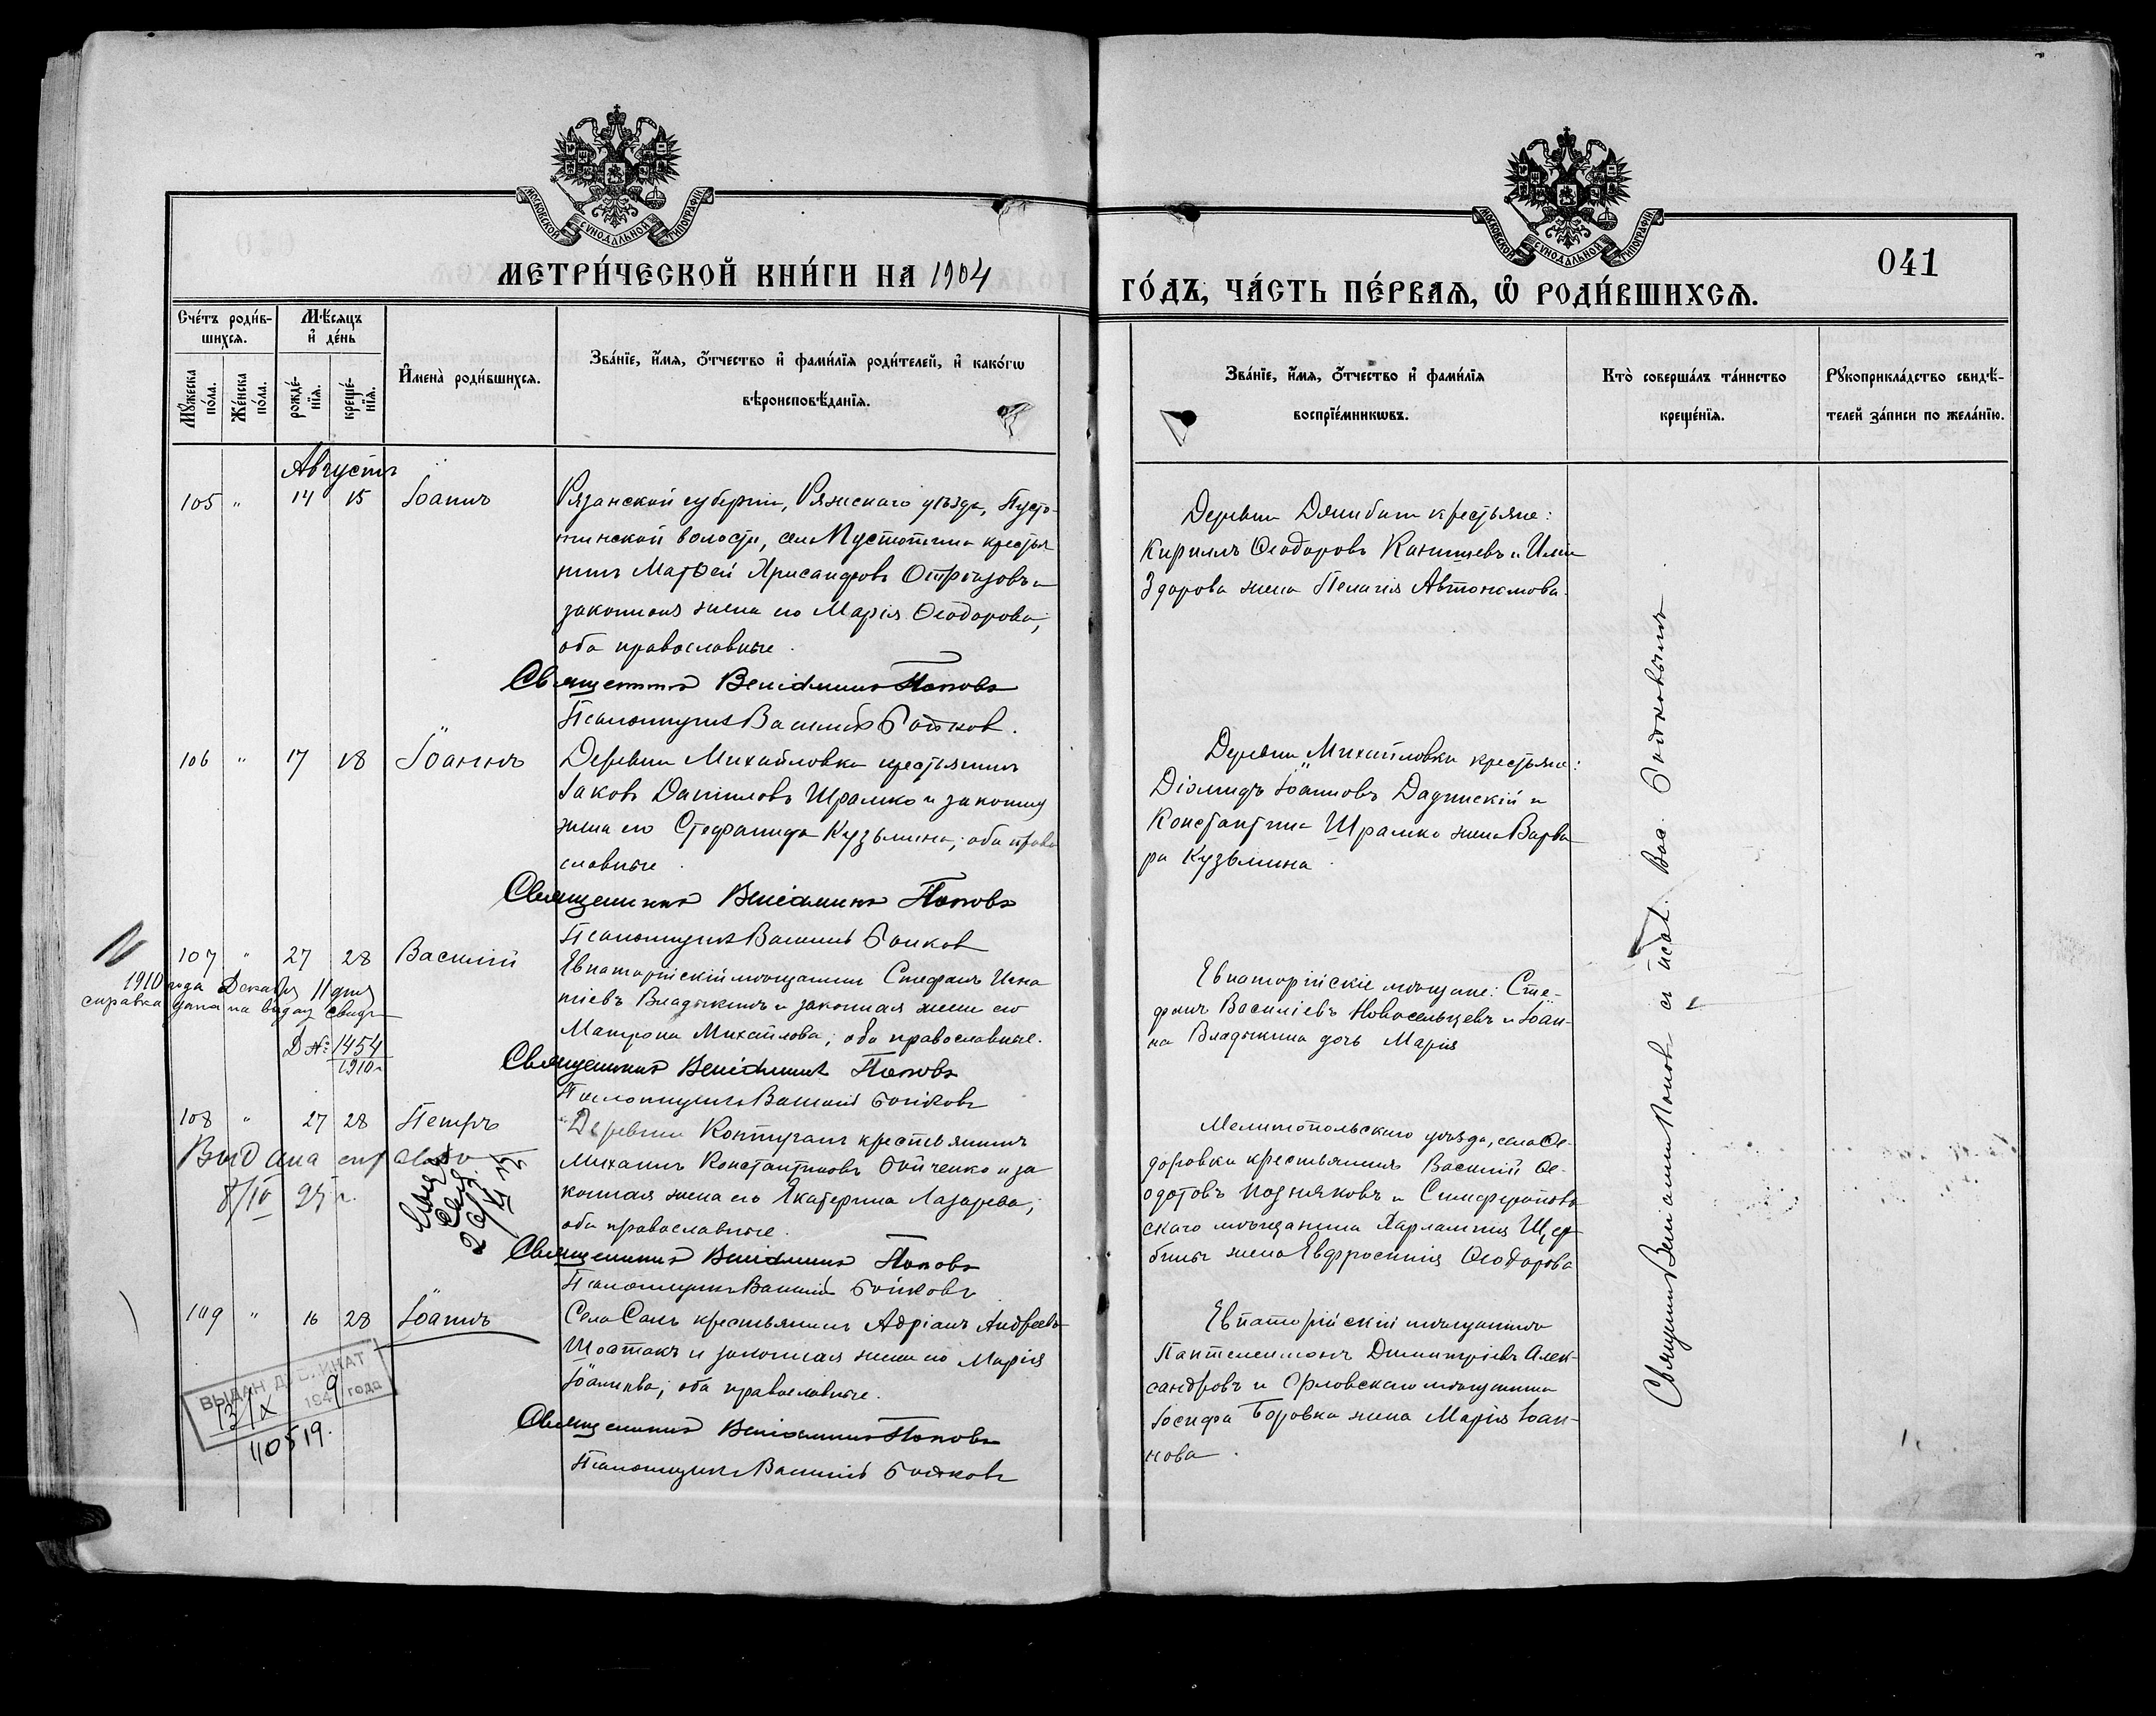 МОСКОВСКОЙ СѴНОДАЛЬНОЙ ТИПОГРАФІИ
МЕТРИ́ЧЕСКОЙ КНИ́ГИ НА 1904
Сче́тъ роди́в-
шихсѧ.
Мѣ́сѧцъ
и҆ де́нь
Мꙋ́жеска
по́ла.
Же́нска
по́ла.
рожде́-
нїѧ.
креще́-
нїѧ.
И҆мена̀ роди́вшихсѧ.
Зва́нїе, и҆́мѧ, ѻ҆́тчество и҆ фами́лїѧ роди́телей, и҆ како́гѡ
вѣроисповѣ́данїѧ.
Августъ
105 " 14 15 Іоаннъ
Рязанской губерніи, Ряжскаго уѣзда, Пусто-
тинской волости, села Пустотина крестья
нинъ Матѳей Хрисанфовъ и
законная жена его Марія Ѳеодорова;
оба православные.
Священникъ Веніаминъ Поповъ
Псаломщикъ Василій Бойков.
106 " 17 18 Іоаннъ
Деревни Михайловки крестьянинъ
Іаковъ Даніиловъ Шрамко и законная
жена его Стефанида Кузьмина; оба право
славные.
Священникъ Веніаминъ Поповъ
Псаломщикъ Василій Бойков
107 " 27 28 Василій
1910 года Декабря 11 дня
справка дана на выдачу свидѣ
Д № 1454
1910 г
Евпаторійскій мѣщанинъ Стефанъ Игна
тіевъ Владыкинъ и законная жена его
Матрона Михайлова; оба православные.
Священникъ Веніаминъ Поповъ
Псаломщикъ Василій Бойковъ
108 " 27 28 Петръ
Выдана справка
8/IV 25 г.
Деревни Контуганъ крестьянинъ
Михаилъ Константиновъ Бойченко и за
конная жена его Екатерина Лазарева;
оба православные.
Священникъ Веніаминъ Поповъ
Псаломщикъ Василій Бойковъ
109 " 16 28 Іоаннъ
ВЫДАН ДУБЛИКАТ
13/IX 1949 года
110519.
Села Сакъ крестьянинъ Адріанъ Андреевъ
Шостакъ и законная жена его Марія
Іоаннова; оба православные.
Священникъ Веніаминъ Поповъ
Псаломщикъ Василій Бойковъ
МОСКОВСКОЙ СѴНОДАЛЬНОЙ ТИПОГРАФІИ
041
ГО́ДЪ, ЧА́СТЬ ПЕ́РВАѦ, Ѽ РОДИ́ВШИХСѦ.
Зва́нїе, и҆́мѧ, ѻ҆́тчество и҆ фами́лїѧ
воспрїе́мникѡвъ.
Кто̀ соверша́лъ та́инство
креще́нїѧ.
Рꙋкоприкла́дство свидѣ́-
телей за́писи по жела́нїю.
Деревни крестьяне:
Кириллъ Ѳеодоровъ Канищевъ и Иліи
Здорова жена Пелагія Автономова.
Деревни Михайловки крестьяне:
Діомидъ Іоанновъ и
Константина Шрамко жена Варва
ра Кузьмина.
Евпаторійскіе мѣщане: Сте-
фанъ Василіевъ Новосельцевъ и Іоан-
на Владыкина дочь Марія
Мелитопольскаго уѣзда, села Ѳе-
доровки крестьянинъ Василій Ѳе-
одотовъ Поздняковъ и Симферополь
скаго мѣщанина Харлампія Щер
бины жена Евфросинія Ѳеодорова
Евпаторійскій мѣщанинъ
Пантелеимонъ Димитріевъ Алек-
сандровъ и Орловскаго мѣщанина
Іосифа Боровка жена Марія Іоан-
нова.
Священникъ Веніаминъ Поповъ съ псал. Вас. Бойковымъ